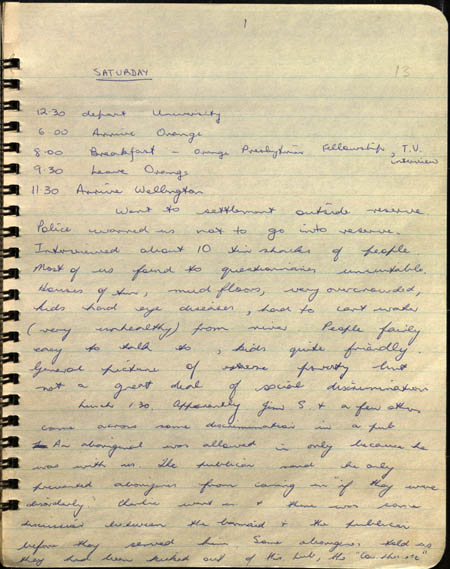 1
13
SATURDAY
12.30 depart University
6.00 Arrive Orange
8.00 Breakfast - Orange Presbyterian Fellowship, T.V. interview
9.30 Leave Orange
11.30 Arrive Wellington
Went to settlement outside reserve
Police warned us not to go into reserve.
Interviewed about 10 tin shacks of people
Most of us found to questionnaires unsuitable.
Houses of tin, mud floors, very overcrowded,
kids had eye diseases, had to cart water
(very unhealthy) from river People fairly
easy to talk to, kids quite friendly.
General picture of extreme poverty but
not a great deal of social discrimination
Lunch 1.30. Apparently Jim S. & a few others
came across some discrimination in a pub
An aboriginal was allowed in only because he
was with us. The publican said he only
prevented aborigines from coming in "if they were
disorderly." Charlie went in & there was some
discussion between the barmaid & the publican
before they served him. Some aborigines told us
they had been kicked out of the pub, the